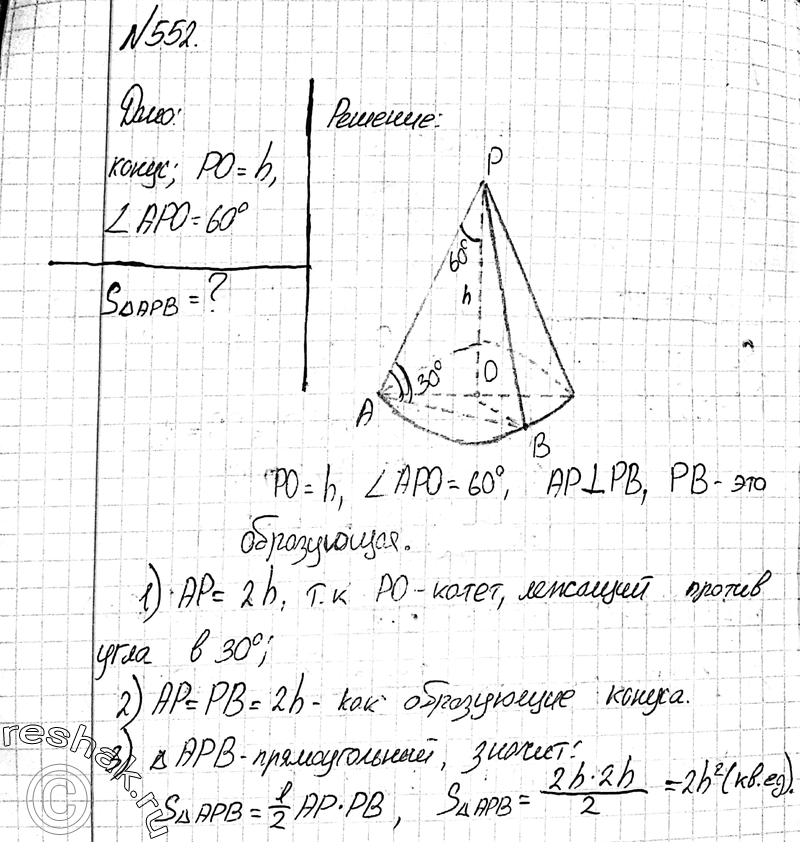 №552.
Дано:
конус; PO = h,
∠APO = 60°
S△APB = ?
Решение:
P
60°
h
30°
O
A
B
PO = h, ∠APO = 60°, AP⊥PB, PB - это
образующая.
1) AP = 2h, т.к PO - катет, лежащий против
угла в 30°;
2) AP = PB = 2h - как образующие конуса.
3) △APB - прямоугольный, значит:
S△APB = 1/2 AP·PB, S△APB = 2h·2h/2 = 2h²(кв.ед).
reshak.ru
©